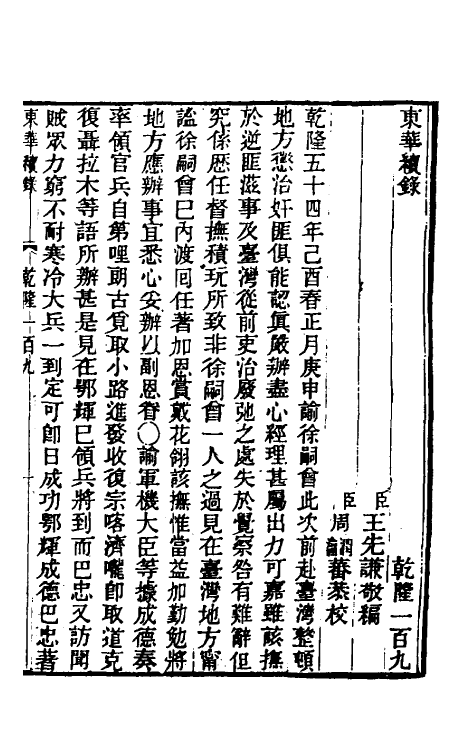 東華續錄
乾隆一百九
臣王先謙敬編
臣周潤蕃恭校
乾隆五十四年己酉春正月庚申諭徐嗣曾此次前赴臺灣整頓
地方懲治奸匪俱能認眞嚴辦盡心經理甚屬出力可嘉雖該撫
於逆匪滋事及臺灣從前吏治廢弛之處失於覺察咎有難辭但
究係歷任督撫積玩所致非徐嗣曾一人之過見在臺灣地方甯
謐徐嗣曾巳內渡囘任著加恩賞戴花翎該撫惟當益加勤勉將
地方應辦事宜悉心妥辦以副恩眷〇諭軍機大臣等據成德奏
率領官兵自第哩朗古覓取小路進發收復宗喀濟嚨卽取道克
復聶拉木等語所辦甚是見在鄂輝巳領兵將到而巴忠又訪聞
賊眾力窮不耐寒冷大兵一到定可卽日成功鄂輝成德巴忠著
東華續錄 乾隆一百九 一